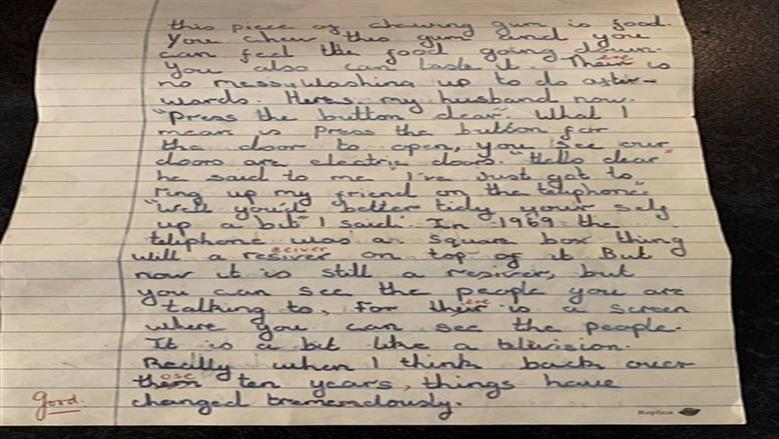 this piece of chewing gum is food.
You chew this gum and you
can feel the food going down.
You also can taste it. There is
no messy washing up to do after-
wards. Heres my husband now.
"Press the button dear. What I
mean is Press the button for
the door to open, you see our
doors are electric doors. "Hello dear"
he said to me "I've Just got to
ring up my friend on the telephone."
"Well you'd better tidy your self
up a bit" I said. In 1969 the
telephone was a square box thing
eciver
will a resiver on top of it But
now it is still a resiver, but
you can see the people you are
ere
talking to, for their is a screen
where you can see the people.
It is a bit like a television.
Really when I think back over
ose
them ten years, things have
changed tremendously.
Good.
Replica